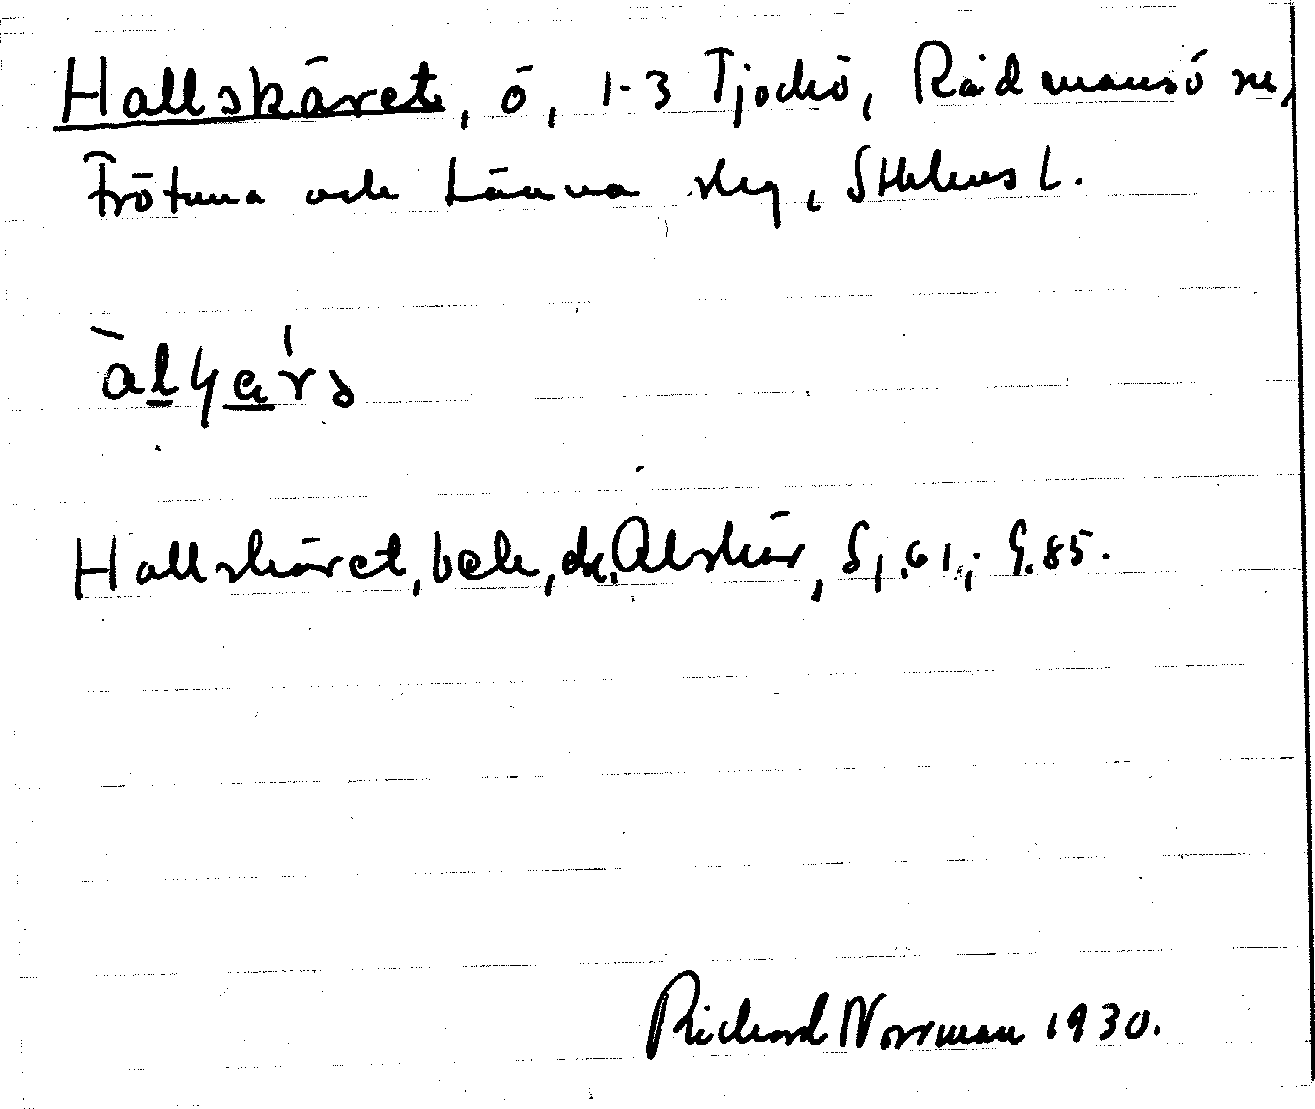 Hallskäret, ö, 1-3 Tjockö, Rådmansö sn,
Frötuna och Länna slg, Sthlms l.
Hallskäret, bek, Alskär, G.85.
Richard Norrman 1930.